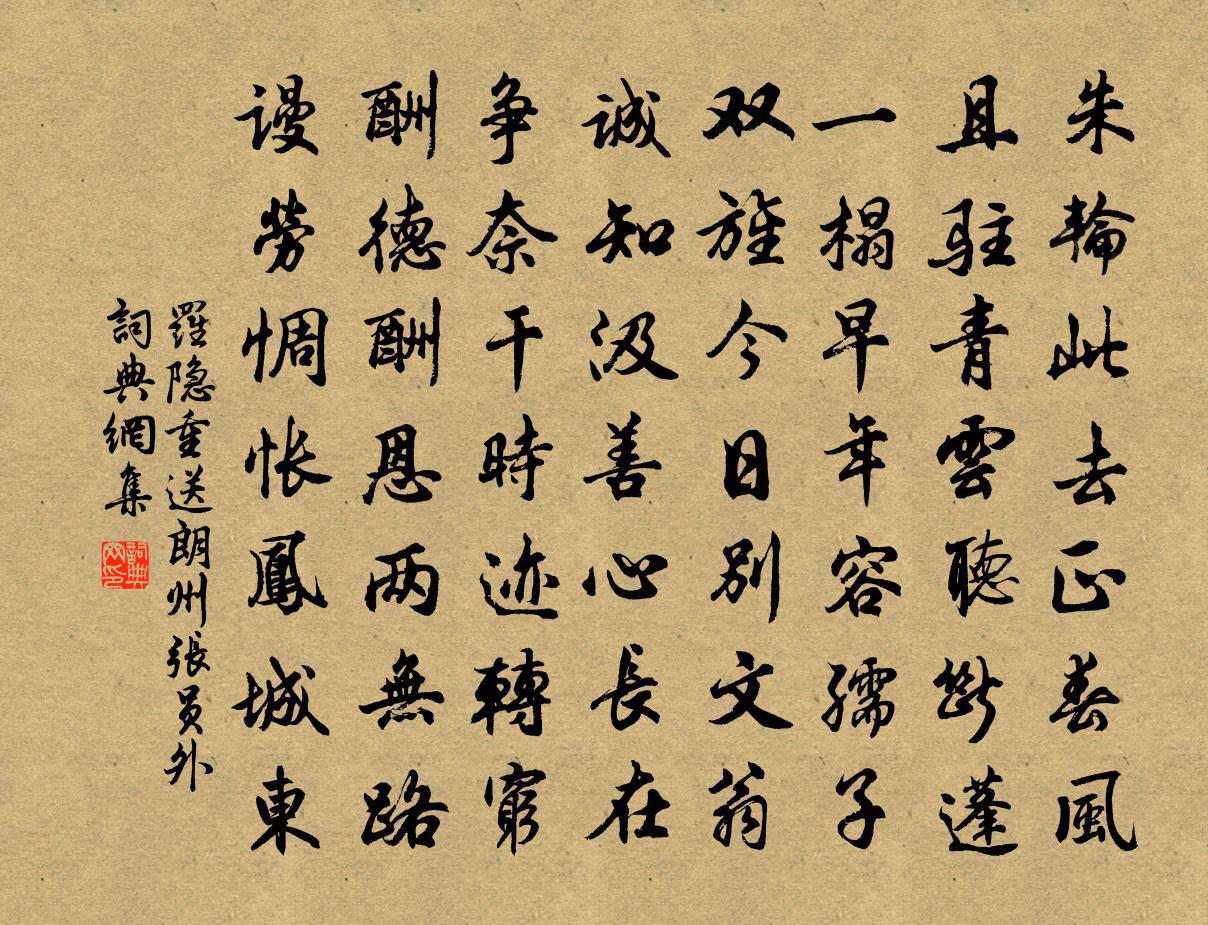 朱輪此去正春風
且駐青雲聽斷蓬
一榻早年容孺子
双旌今日別文翁
诚知汲善心長在
争奈干時迹轉窮
酬德酬恩两無路
谩勞惆怅鳳城東
羅隐重送朗州張员外
詞典網集
詞典网印